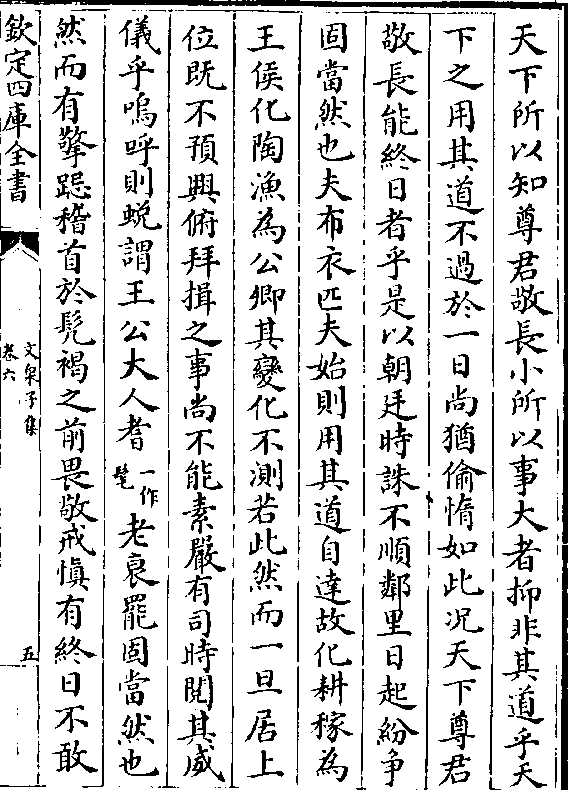 天下所以知尊君敬長小所以事大者抑非其道乎天
下之用其道不過於一日尚猶偷惰如此况天下尊君
敬長能終日者乎是以朝廷時誅不順鄰里日起紛爭
固當然也夫布衣匹夫始則用其道自達故化耕稼為
王侯化陶漁為公卿其變化不測若此然而一旦居上
位既不預興俯拜揖之事尚不能素嚴有司時閱其威
儀乎嗚呼則蛻謂王公大人耆一作髦老衰罷固當然也
然而有擎跽稽首於髡褐之前畏敬戒慎有終日不敢
欽定四庫全書
文泉子集
卷六
五